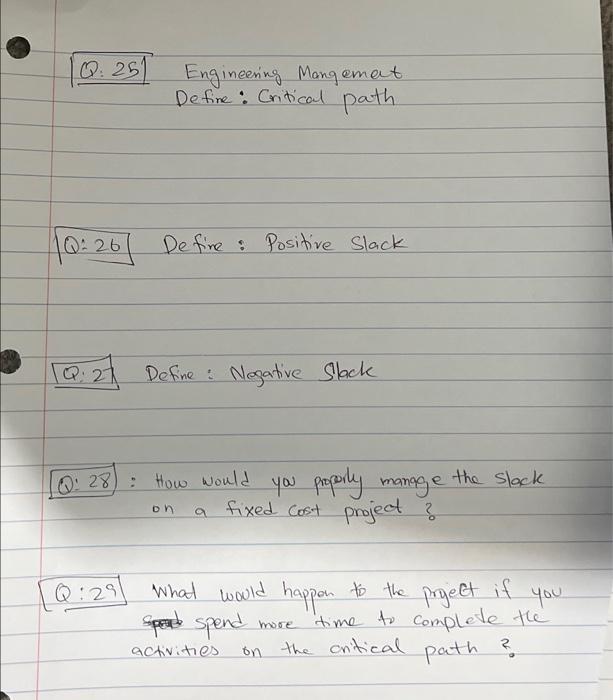 Q: 25 Engineering Mangemet
Define: Critical path
Q: 26 Define : Positive Slack
Q: 27 Define : Negative Slack
Q: 28 : How would you properly manage the slack
on a fixed cost project ?
Q: 29 What would happen to the project if you
spend more time to complete the
activities on the critical path ?